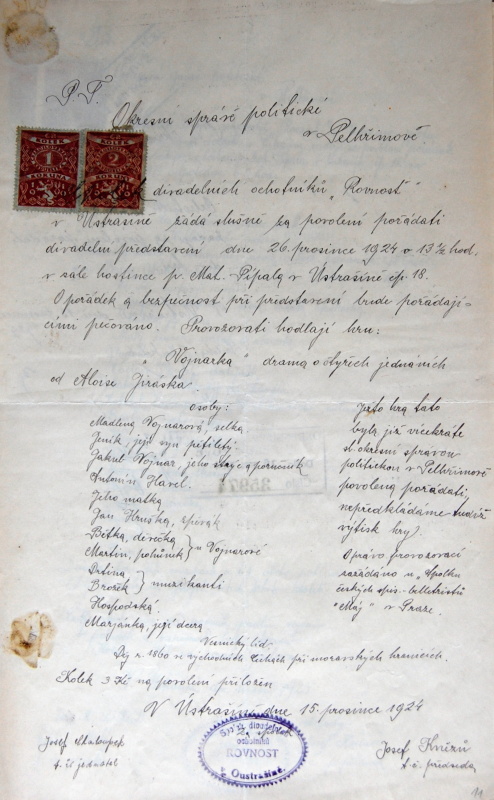 P. T.
Okresní správě politické
v Pelhřimově
KOLEK
1
KORUNA
KOLEK
2
KORUNY
divadelních ochotníků „Rovnost“
v Ústrašíně žádá slušně za povolení pořádati
divadelní představení dne 26. prosince 1924 o 13 ½ hod.
v sále hostince p. Mat. Pípala v Ústrašíně čp. 18.
O pořádek a bezpečnost při představení bude pořádají-
cími pečováno. Provozovati hodlají hru:
„Vojnarka“ drama o čtyřech jednáních
od Aloise Jiráska.
osoby:
Madlena Vojnarová, selka
Jeník, její syn pětiletý
Jakub Vojnar, jeho strýc a poručník
Antonín Havel.
Jeho matka
Jan Hruška,
Bětka, děvečka
Martin, pohůnek } u Vojnarové
Drtina
Brožek } muzikanti
Hospodská.
Marjánka, její dcera
Vesnický lid.
Ježto hra tato
byla již vícekráte
sl. okresní správou
politickou v Pelhřimově
povolena pořádati,
nepředkládáme tudíž
výtisk hry.
Oprávo provozovací
zažádáno u „Spolku
českých spis. belletristů
„Máj“ v Praze.
Děj r. 1860 ve východních Čechách při moravských hranicích.
Kolek 3 Kč na povolení přiložen
V Ústrašíně dne 15. prosince 1924
Za spolek
Spolek divadelních
ochotníků
ROVNOST
v Oustrašíně.
Josef
t. č. jednatel
Josef
t. č. předseda